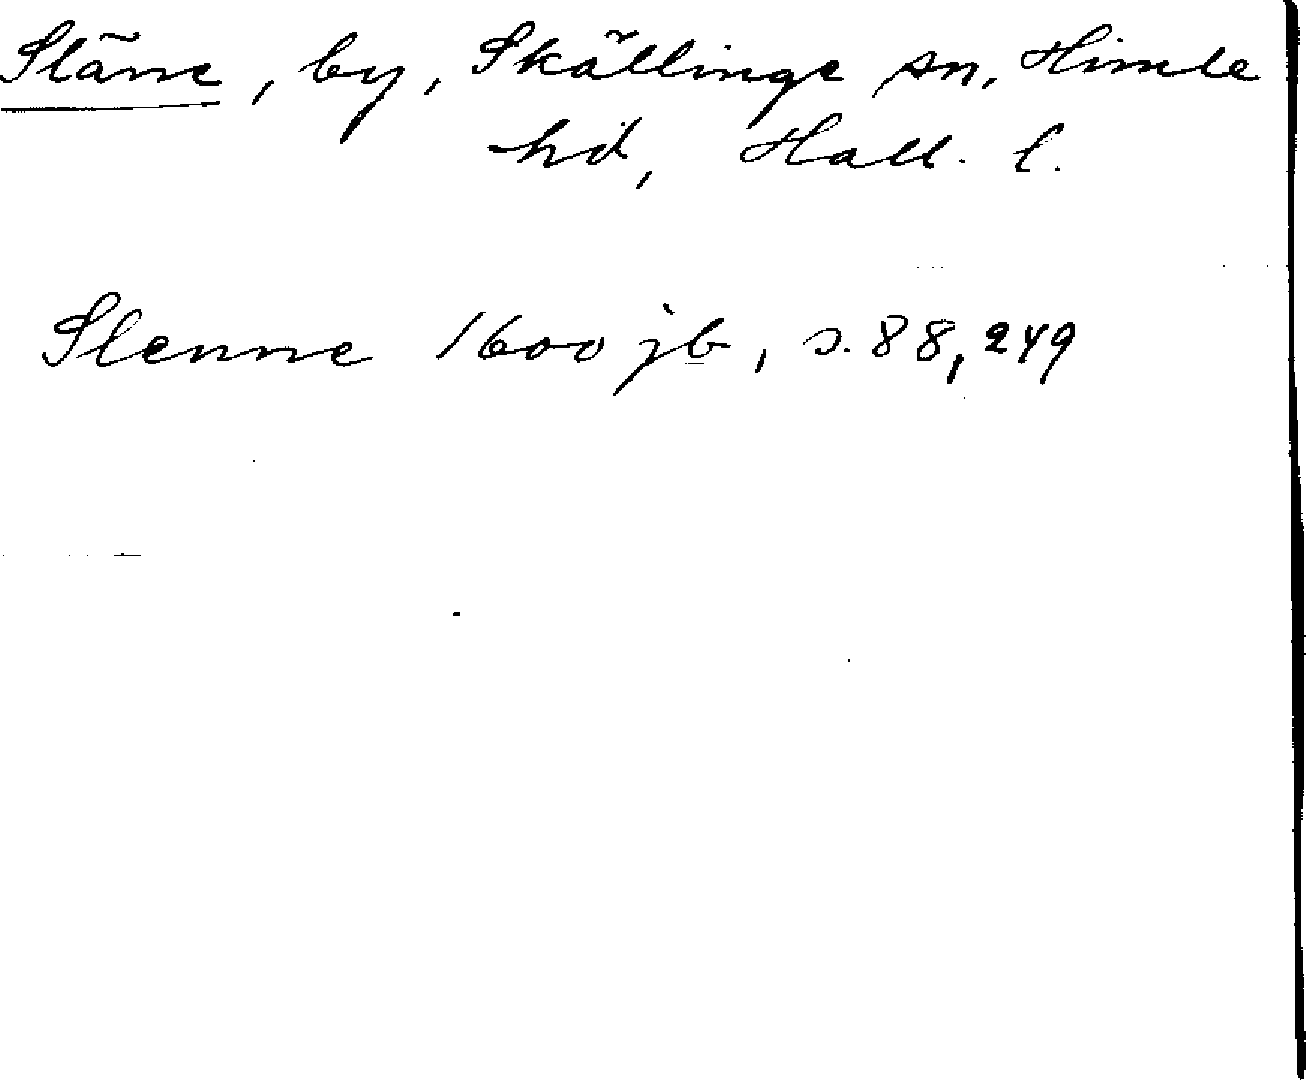 Släne, by, Skällinge sn, Himle
hd, Hall. l.
Slenne 1600 jb, s. 88, 249